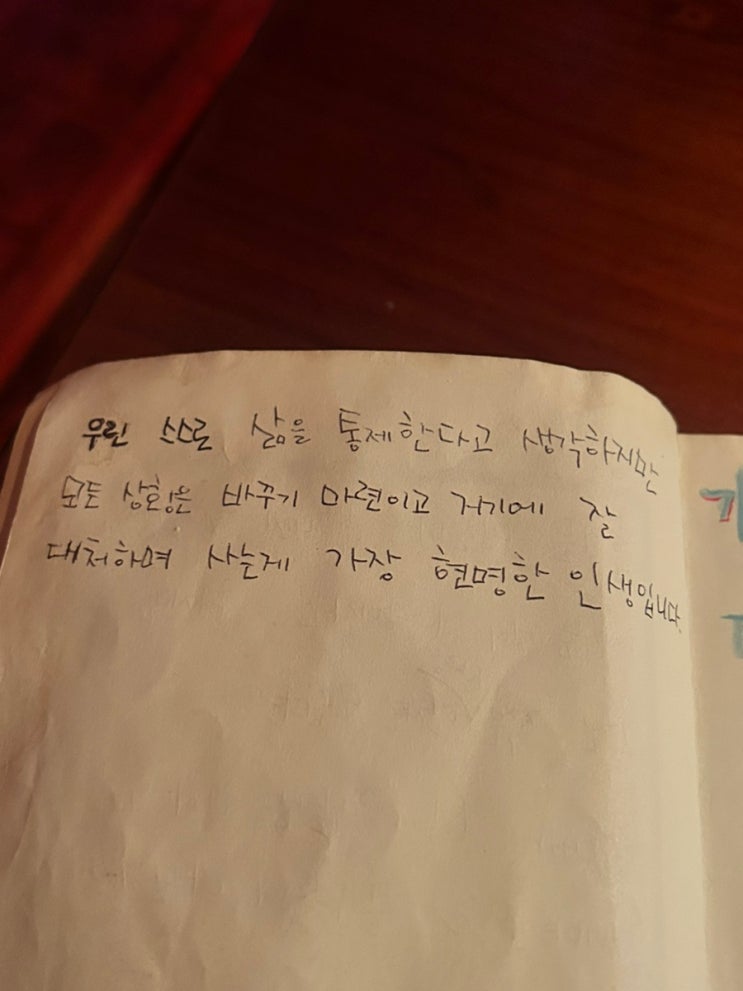 우린 스스로 삶을 통제한다고 생각하지만
모든 상황은 바꾸기 마련이고 거기에 잘
대처하며 사는게 가장 현명한 인생입니다.